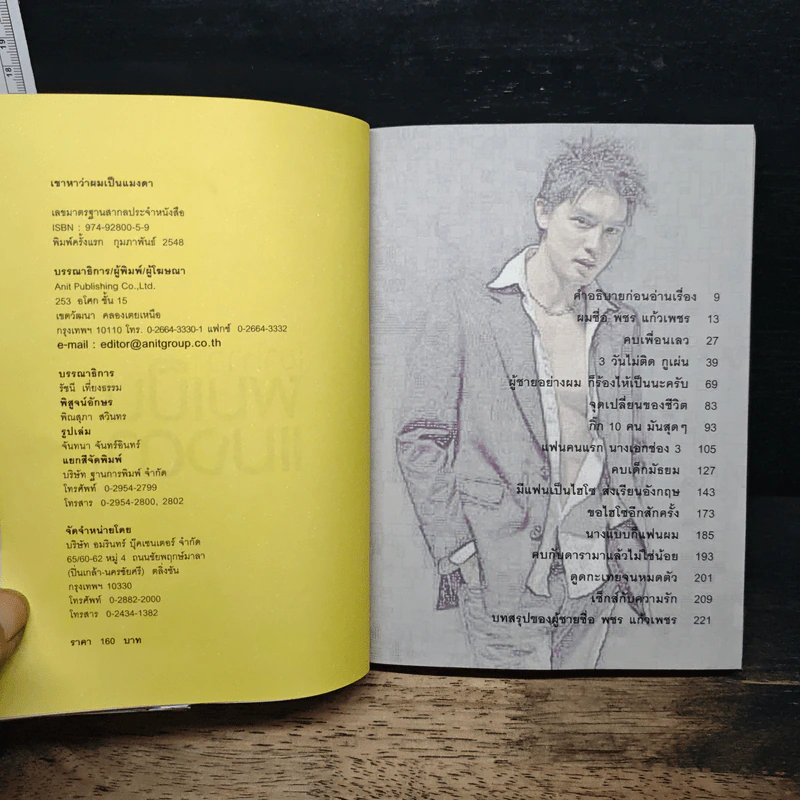 เขาหาว่าผมเป็นแมงดา
เลขมาตรฐานสากลประจำหนังสือ
ISBN : 974-92800-5-9
พิมพ์ครั้งแรก กุมภาพันธ์ 2548
บรรณาธิการ/ผู้พิมพ์/ผู้โฆษณา
Anit Publishing Co.,Ltd.
253 อโศก ชั้น 15
เขตวัฒนา คลองเตยเหนือ
กรุงเทพฯ 10110 โทร. 0-2664-3330-1 แฟกซ์ 0-2664-3332
e-mail : editor@anitgroup.co.th
บรรณาธิการ
รัชนี เที่ยงธรรม
พิสูจน์อักษร
พิณสุภา สวินทร
รูปเล่ม
จันทนา จันทร์อินทร์
แยกสีจัดพิมพ์
บริษัท ฐานการพิมพ์ จำกัด
โทรศัพท์ 0-2954-2799
โทรสาร 0-2954-2800, 2802
จัดจำหน่ายโดย
บริษัท อมรินทร์ บุ๊คเซนเตอร์ จำกัด
65/60-62 หมู่ 4 ถนนชัยพฤกษ์มาลา
(ปิ่นเกล้า-นครชัยศรี) ตลิ่งชัน
กรุงเทพฯ 10330
โทรศัพท์ 0-2882-2000
โทรสาร 0-2434-1382
ราคา 160 บาท
คำอธิบายก่อนอ่านเรื่อง 9
ผมชื่อ พชร แก้วเพชร 13
คบเพื่อนเลว 27
3 วันไม่ติด กูเผ่น 39
ผู้ชายอย่างผม ก็ร้องไห้เป็นนะครับ 69
จุดเปลี่ยนของชีวิต 83
กิ๊ก 10 คน มันสุดๆ 93
แฟนคนแรก นางเอกช่อง 3 105
คบเด็กมัธยม 127
มีแฟนเป็นไฮโซ ส่งเรียนอังกฤษ 143
ขอไฮโซอีกสักครั้ง 173
นางแบบก็แฟนผม 185
คบกับดารามาแล้วไม่ใช่น้อย 193
ดูดกะเทยจนหมดตัว 201
เซ็กส์กับความรัก 209
บทสรุปของผู้ชายชื่อ พชร แก้วเพชร 221
18
19